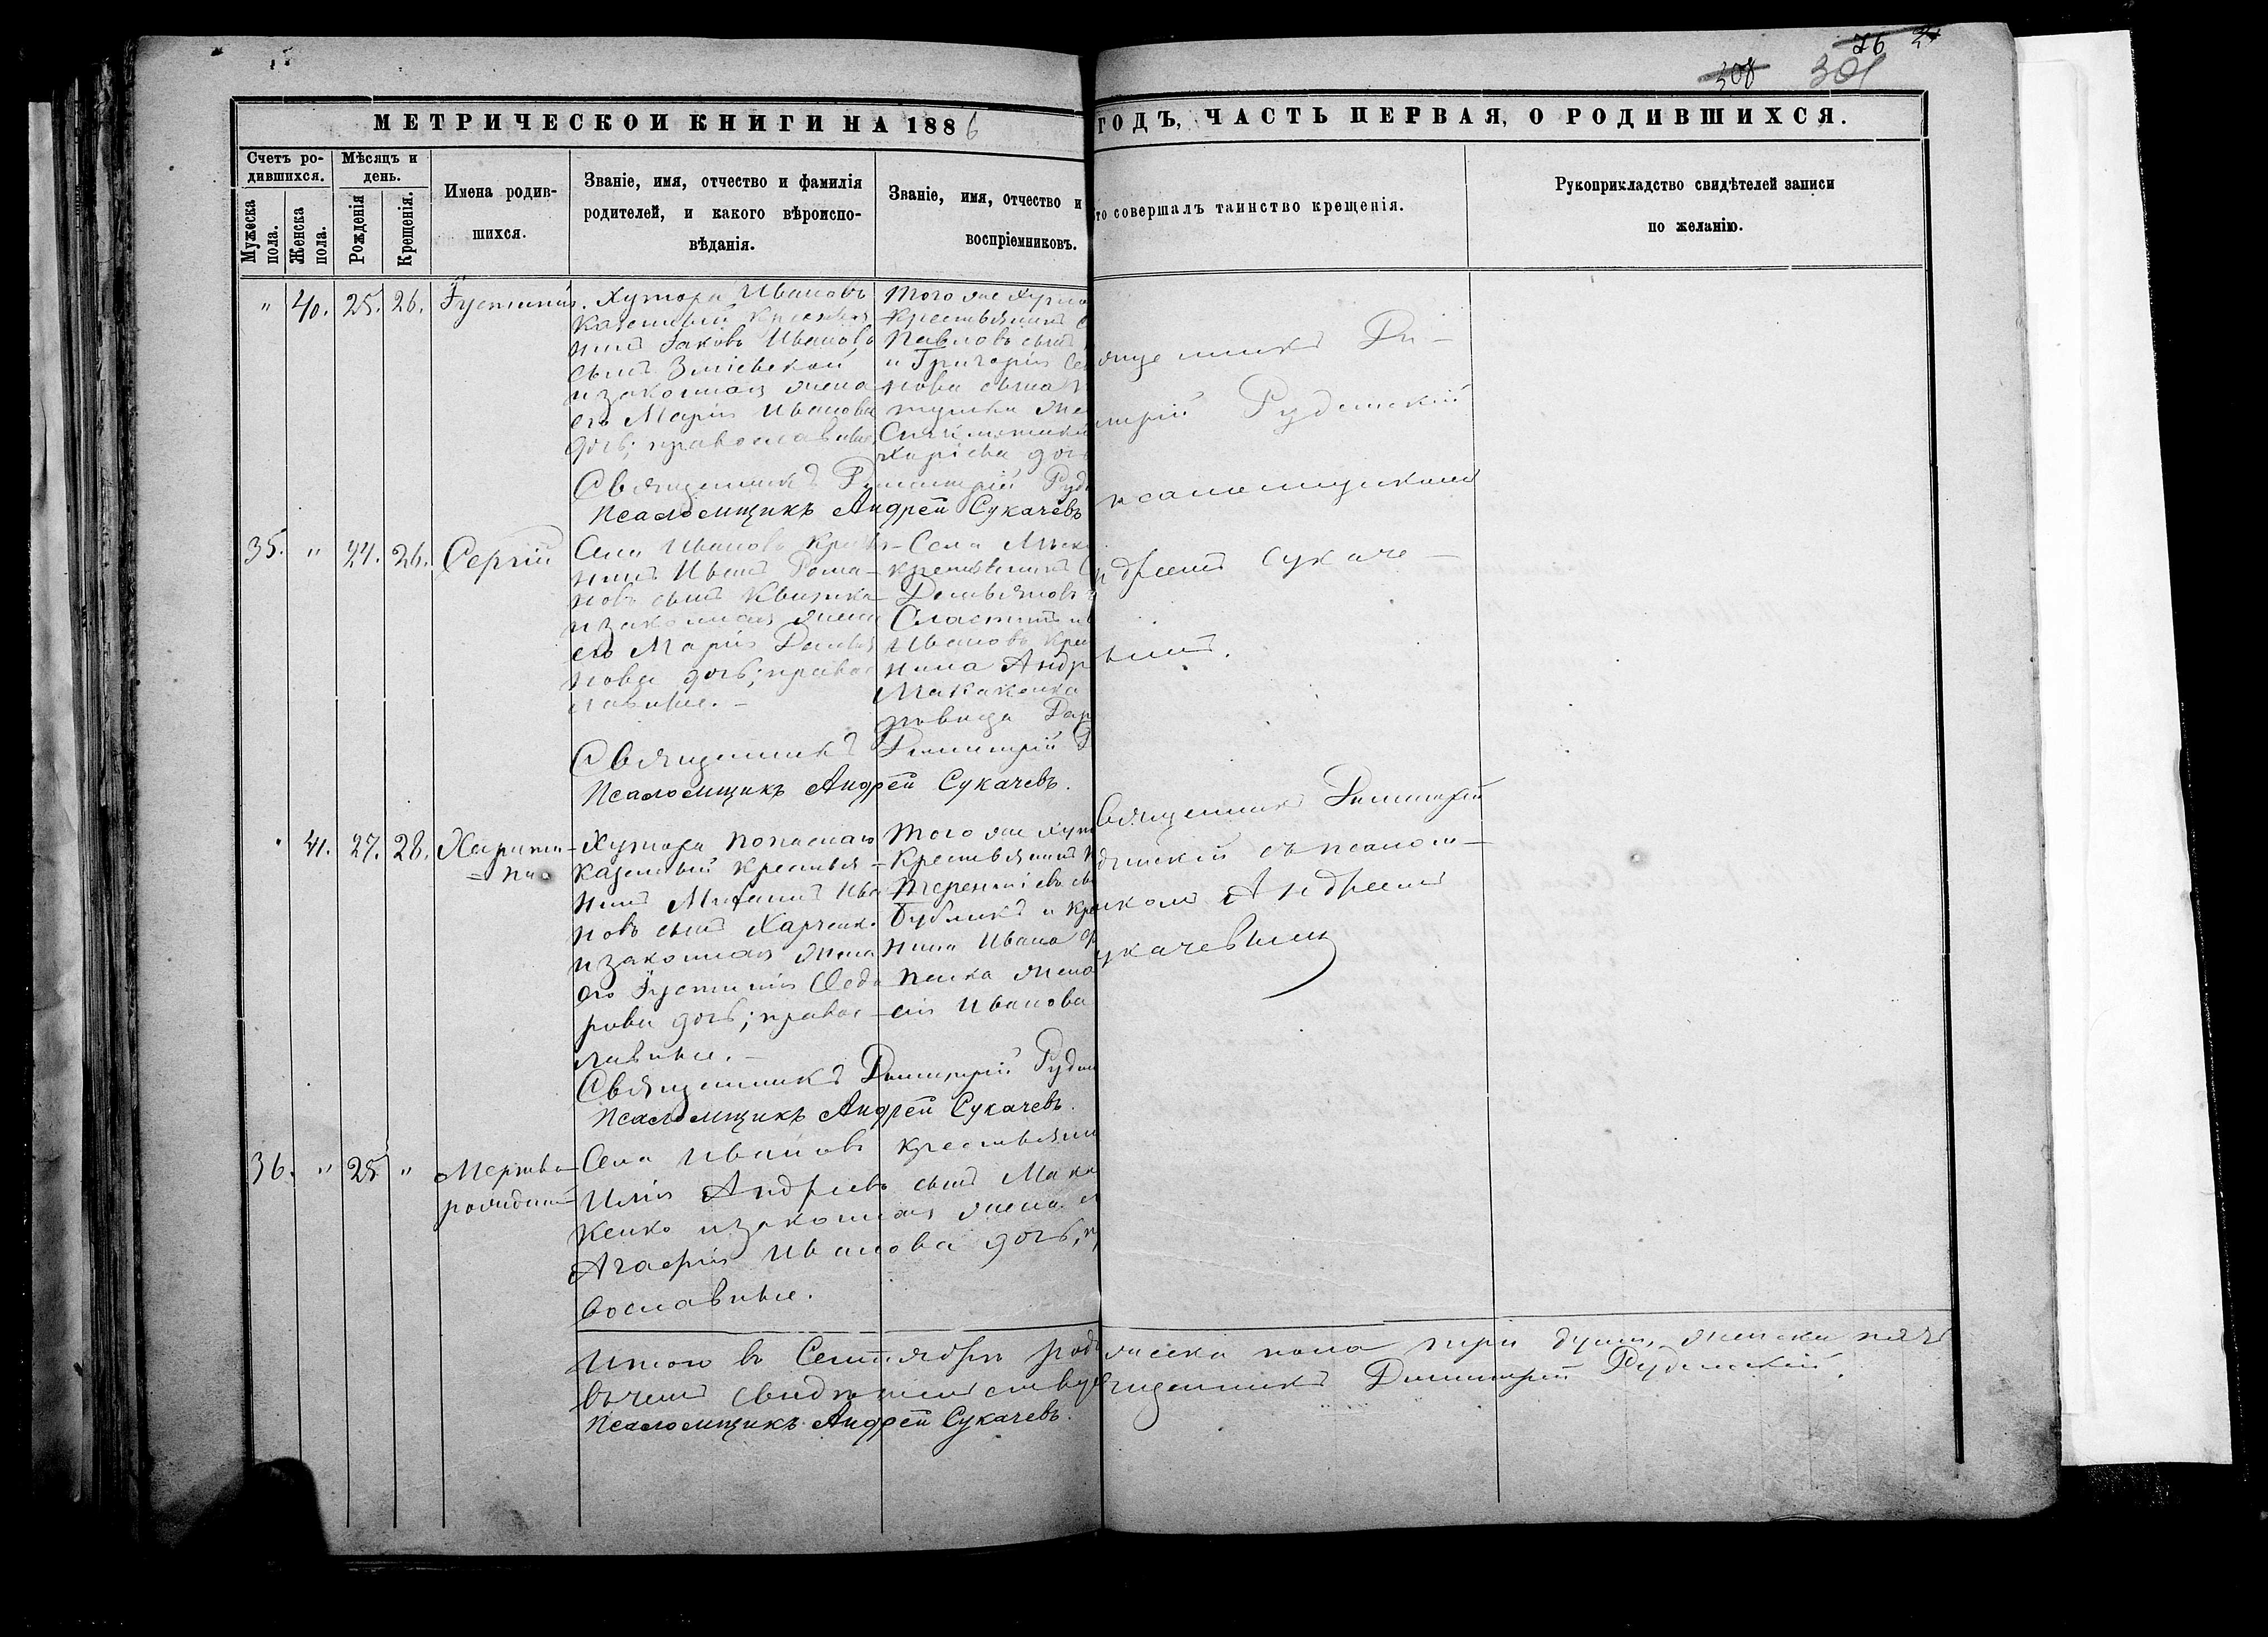 76
308 301
МЕТРИЧЕСКОЙ КНИГИ НА 1886
ГОДЪ, ЧАСТЬ ПЕРВАЯ, О РОДИВШИХСЯ.
Счетъ ро-
дившихся.
Мужеска
пола.
Женска
пола.
Мѣсяцъ и
день.
Рожденія
Крещенія.
Имена родив-
шихся.
Званіе, имя, отчество и фамилія
родителей, и какого вѣроиспо-
вѣданія.
Званіе, имя, отчество и
воспріемниковъ.
то совершалъ таинство крещенія.
Рукоприкладство свидѣтелей записи
по желанію.
" 40. 25. 26. Іустинія.
Хутора Иванова
казенный крестья
нинъ Іаковъ Ивановъ
сынъ Зміевской
и законная жена
его Марія Иванова
дочь; православные
Того же хутора
крестьянинъ
Павловъ сынъ
и Григорія
нова сына
жен
дочь
Священникъ Димитрій Руд
Псаломщикъ Андрей Сукачевъ
щенникъ Ди-
митрій Рудинскій
псаломщикомъ
дреемъ Сукаче-
вымъ.
35. " 24. 26. Сергій
Села Иванова кресть
нинъ Иванъ Рома-
новъ сынъ Квитка
и законная жена
его Марія Дамья
нова дочь; правос
лавные.-
Села
крестьянинъ
Дамьяновъ
Сластинъ и
Иванова крес
нина Андр
Макакенка
довица Дар
Священникъ Димитрій Р
Псаломщикъ Андрей Сукачевъ.
" 41. 27. 28. Харити-
=на.
Хутора Попаснаго
казенный крестья-
нинъ Михаилъ Ива
новъ сынъ Харченко
и законная жена
его Іустинія Ѳедо
рова дочь; правос-
лавные.-
Того же хут
крестьянинъ
Терентіевъ сы
Бубликъ и кре
нина Ивана
пенка жена
сія Иванова
Священникъ Димитрій Рудин
Псаломщикъ Андрей Сукачевъ.
Священникъ Димитрій
динскій съ псалом-
щикомъ Андреемъ
укачевымъ
36. " 25 " Мертво-
рожденный
Села Иванова крестьянин
Илія Андреевъ сынъ Мака
кенко и законная жена
Агафія Иванова дочь, п
вославные.
Итого въ Сентябрѣ род
жеска пола три души, женска пять
въ чемъ свидѣтельствуе
щенникъ Димитрій Рудинскій.
Псаломщикъ Андрей Сукачевъ.